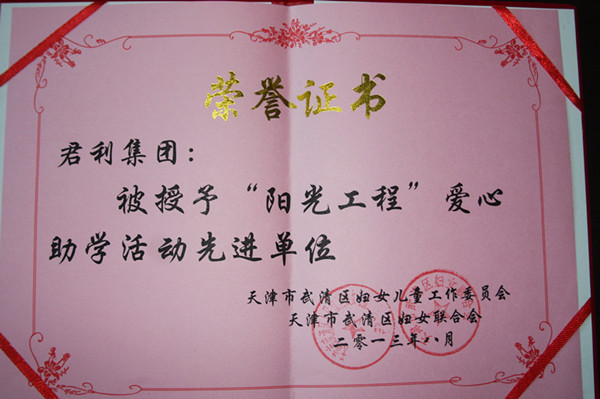 荣誉证书
君利集团：
被授予“阳光工程”爱心
助学活动先进单位
天津市武清区妇女儿童工作委员会
天津市武清区妇女联合会
二零一三年八月